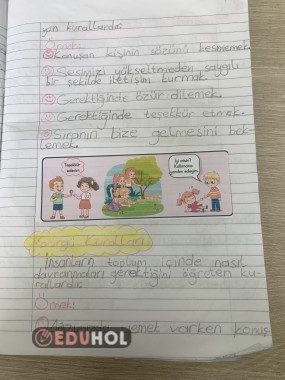 yan kurallardır.
Örnek:
Konuşan kişinin sözünü kesmemek
Sesimizi yükseltmeden saygılı
bir şekilde iletişim kurmak.
Gerektiğinde özür dilemek.
Gerektiğinde teşekkür etmek.
Sıranın bize gelmesini bek-
lemek.
Teşekkür
ederim.
İyi misin?
Kalkmana
yardım edeyim.
Görgü Kuralları
İnsanların toplum içinde nasıl
davranmaları gerektiğini öğreten ku-
rallardır.
Örnek:
yemek varken konuş
EDUHOL